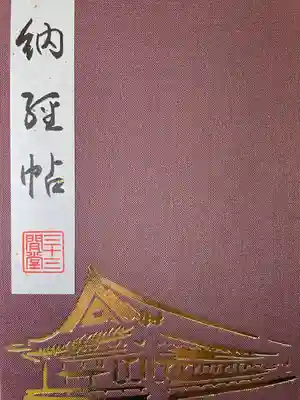 納経帖
三十三間堂